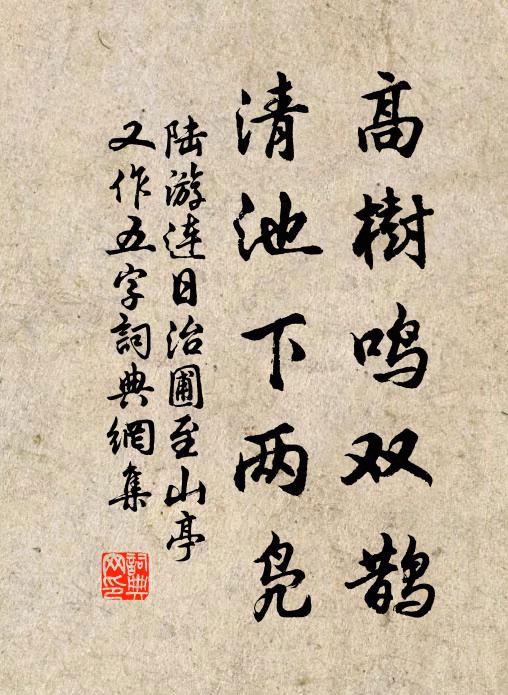 高樹鸣双鹊
清池下两凫
陆游连日治圃至山亭
又作五字詞典網集
詞典
网印